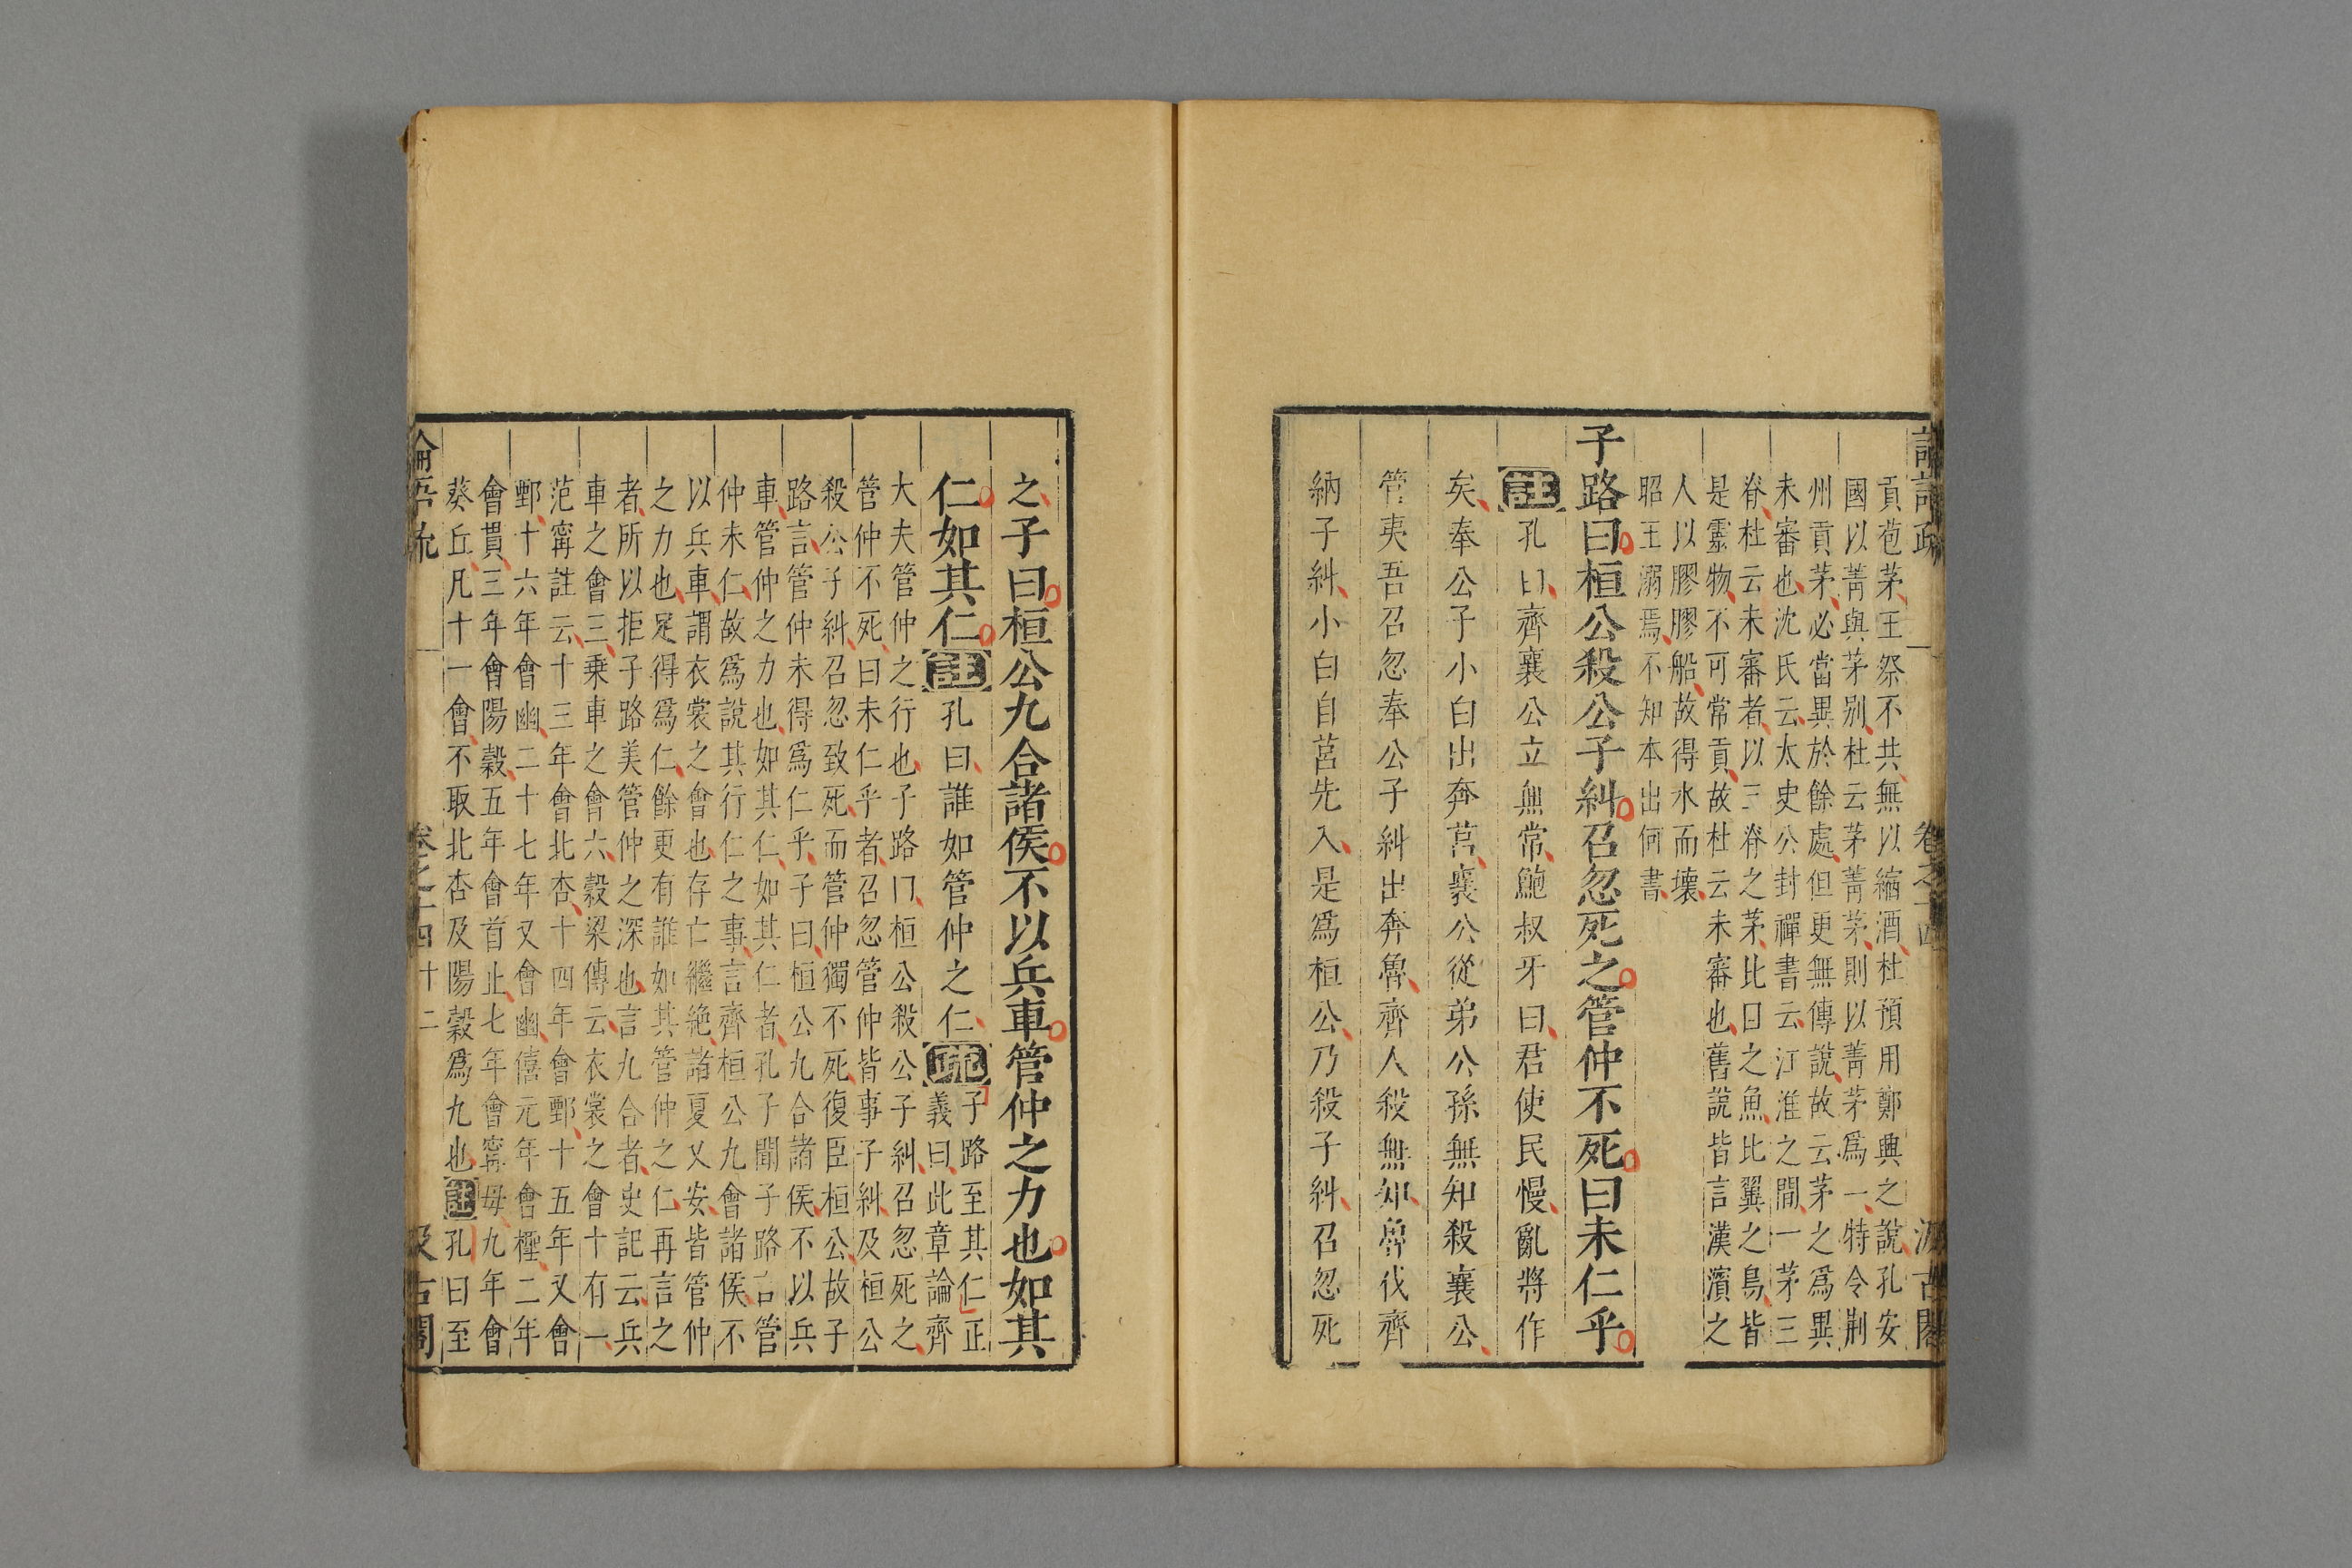 貢苞茅王祭不共無以縮酒杜預用鄭興之說孔安
國以菁與茅別杜云茅菁茅則以菁茅爲一特令荆
州貢茅必當異於餘處但更無傳說故云茅之爲異
未審也沈氏云太史公封禪書云江淮之間一茅三
脊杜云未審者以三脊之茅比目之魚比翼之鳥皆
是靈物不可常貢故杜云未審也舊說皆言漢濱之
人以膠膠船故得水而壞
昭王溺焉不知本出何書
子路曰桓公殺公子糾召忽死之管仲不死曰未仁乎
註孔曰齊襄公立無常鮑叔牙曰君使民慢亂將作
矣奉公子小白出奔莒襄公從弟公孫無知殺襄公
管夷吾召忽奉公子糾出奔魯齊人殺無知魯伐齊
納子糾小白自莒先入是爲桓公乃殺子糾召忽死
之子曰桓公九合諸侯不以兵車管仲之力也如其
仁如其仁註孔曰誰如管仲之仁疏子路至其仁正
義曰此章論齊
大夫管仲之行也子路曰桓公殺公子糾召忽死之
管仲不死曰未仁乎者召忽管仲皆事子糾及桓公
殺公子糾召忽致死而管仲獨不死復臣桓公故子
路言管仲未得爲仁乎子曰桓公九合諸侯不以兵
車管仲之力也如其仁如其仁者孔子聞子路言管
仲未仁故爲說其行仁之事言齊桓公九會諸侯不
以兵車謂衣裳之會也存亡繼絶諸夏乂安皆管仲
之力也足得爲仁餘更有誰如其管仲之仁再言之
者所以拒子路美管仲之深也言九合者史記云兵
車之會三乗車之會六穀梁傳云衣裳之會十有一
范甯註云十三年會北杏十四年會鄄十五年又會
鄄十六年會幽二十七年又會幽僖元年會檉二年
會貫三年會陽穀五年會首止七年會甯毋九年會
葵丘凡十一會不取北杏及陽穀爲九也註孔曰至